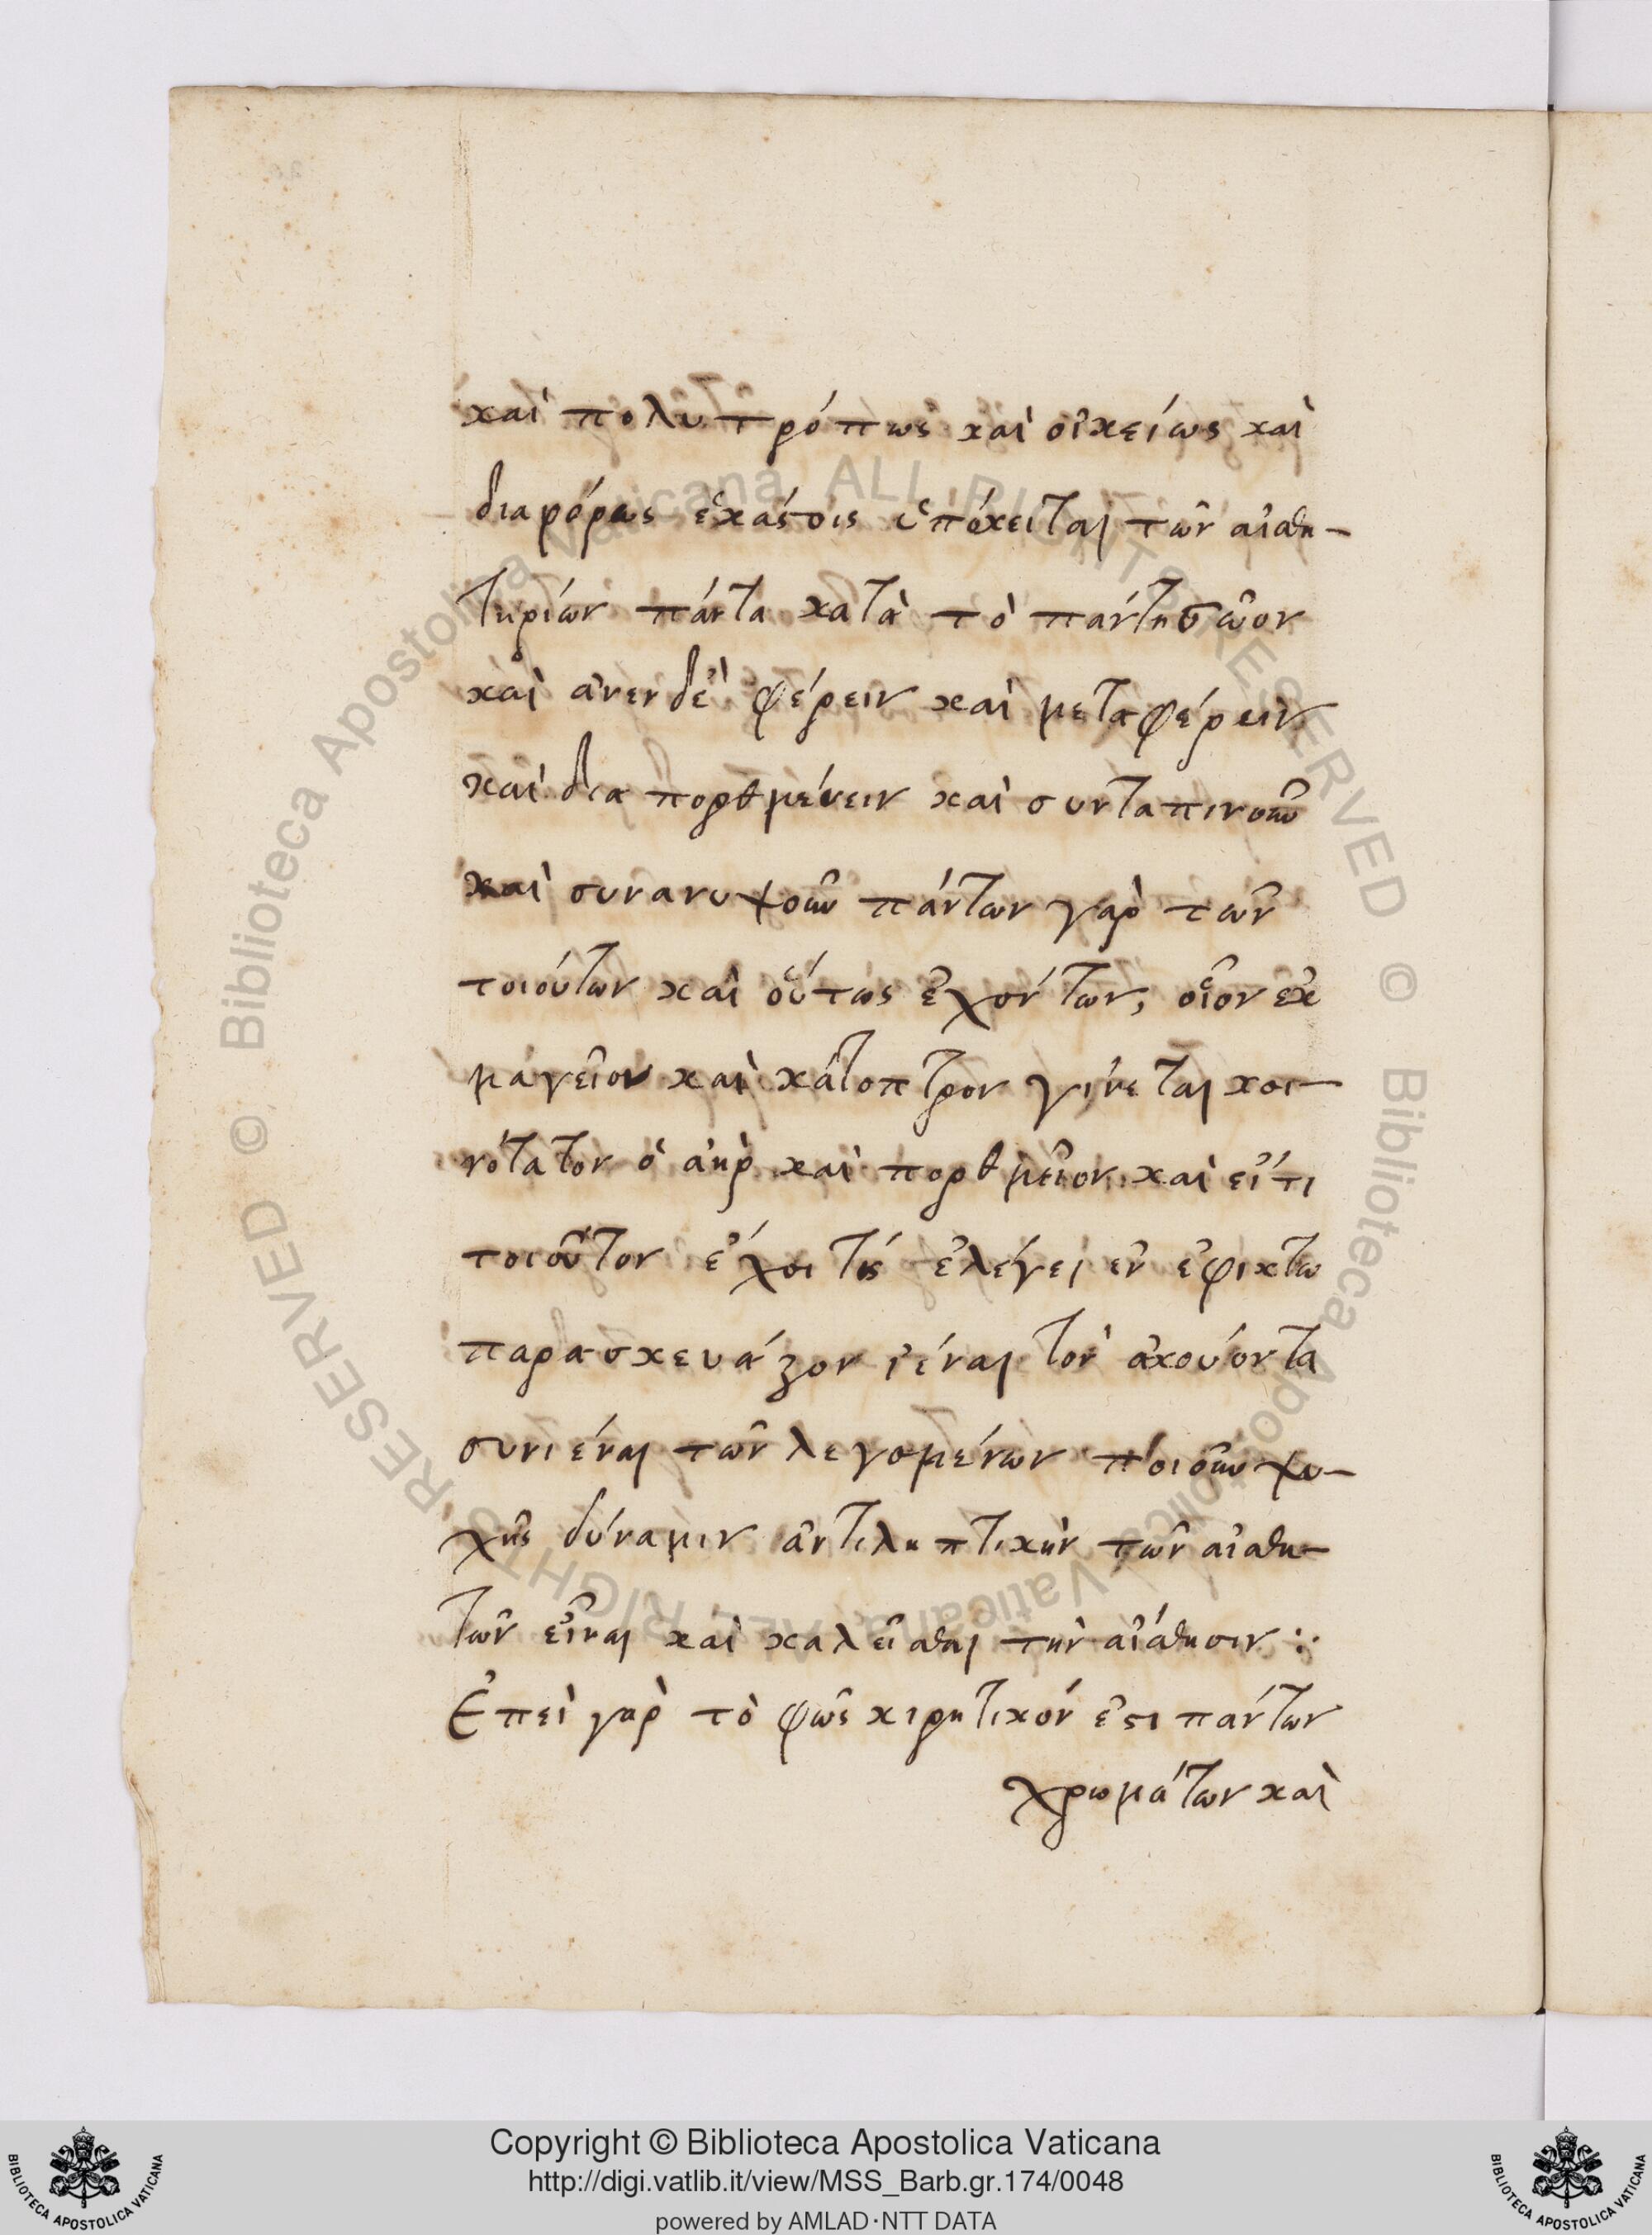 καὶ πολυτρόπως καὶ οἰκείως καὶ
διαφόρως ἑκάστοις ὑπόκειται τῶν αἰσθη-
τηρίων πάντα κατὰ τὸ παντησῶον
καὶ ἀνενδεὲ φέρειν καὶ μεταφέρειν
καὶ διαπορθμέυειν καὶ συνταπινοῦν
καὶ συνανυψοῦν πάντων γαρ τῶν
τοιούτων καὶ οὕτως ἐχόντων, οἷον ἐκ
μαγεῖον καὶ κάτοπτρον γίνεται κοι-
νότατον ὁ ἀὴρ καὶ πορθμεῖον καὶ εἴ τι
τοιοῦτον ἔχοι τίς ἐλέγει ἐν ἐφικτω
παρασκευάζον ἰέναι τὸν ἀκούοντα
συνιέναι τῶν λεγομένων ποιοῦν ψυ-
χῆς δύναμιν ἀντιληπτικὴν τῶν αἰσθη-
τῶν εἶναι καὶ καλεῖσθαι τὴν αἴσθησιν :·
Ἐπεὶ γαρ τὸ φῶς κιρητικόν ἐστι πάντων
χρωμάτων καὶ
© Biblioteca Apostolica Vaticana ALL RIGHTS RESERVED © Biblioteca Apostolica Vaticana ALL RIGHTS RESERVED
BIBLIOTECA APOSTOLICA VATICANA
Copyright © Biblioteca Apostolica Vaticana
http://digi.vatlib.it/view/MSS_Barb.gr.174/0048
powered by AMLAD·NTT DATA
BIBLIOTECA APOSTOLICA VATICANA